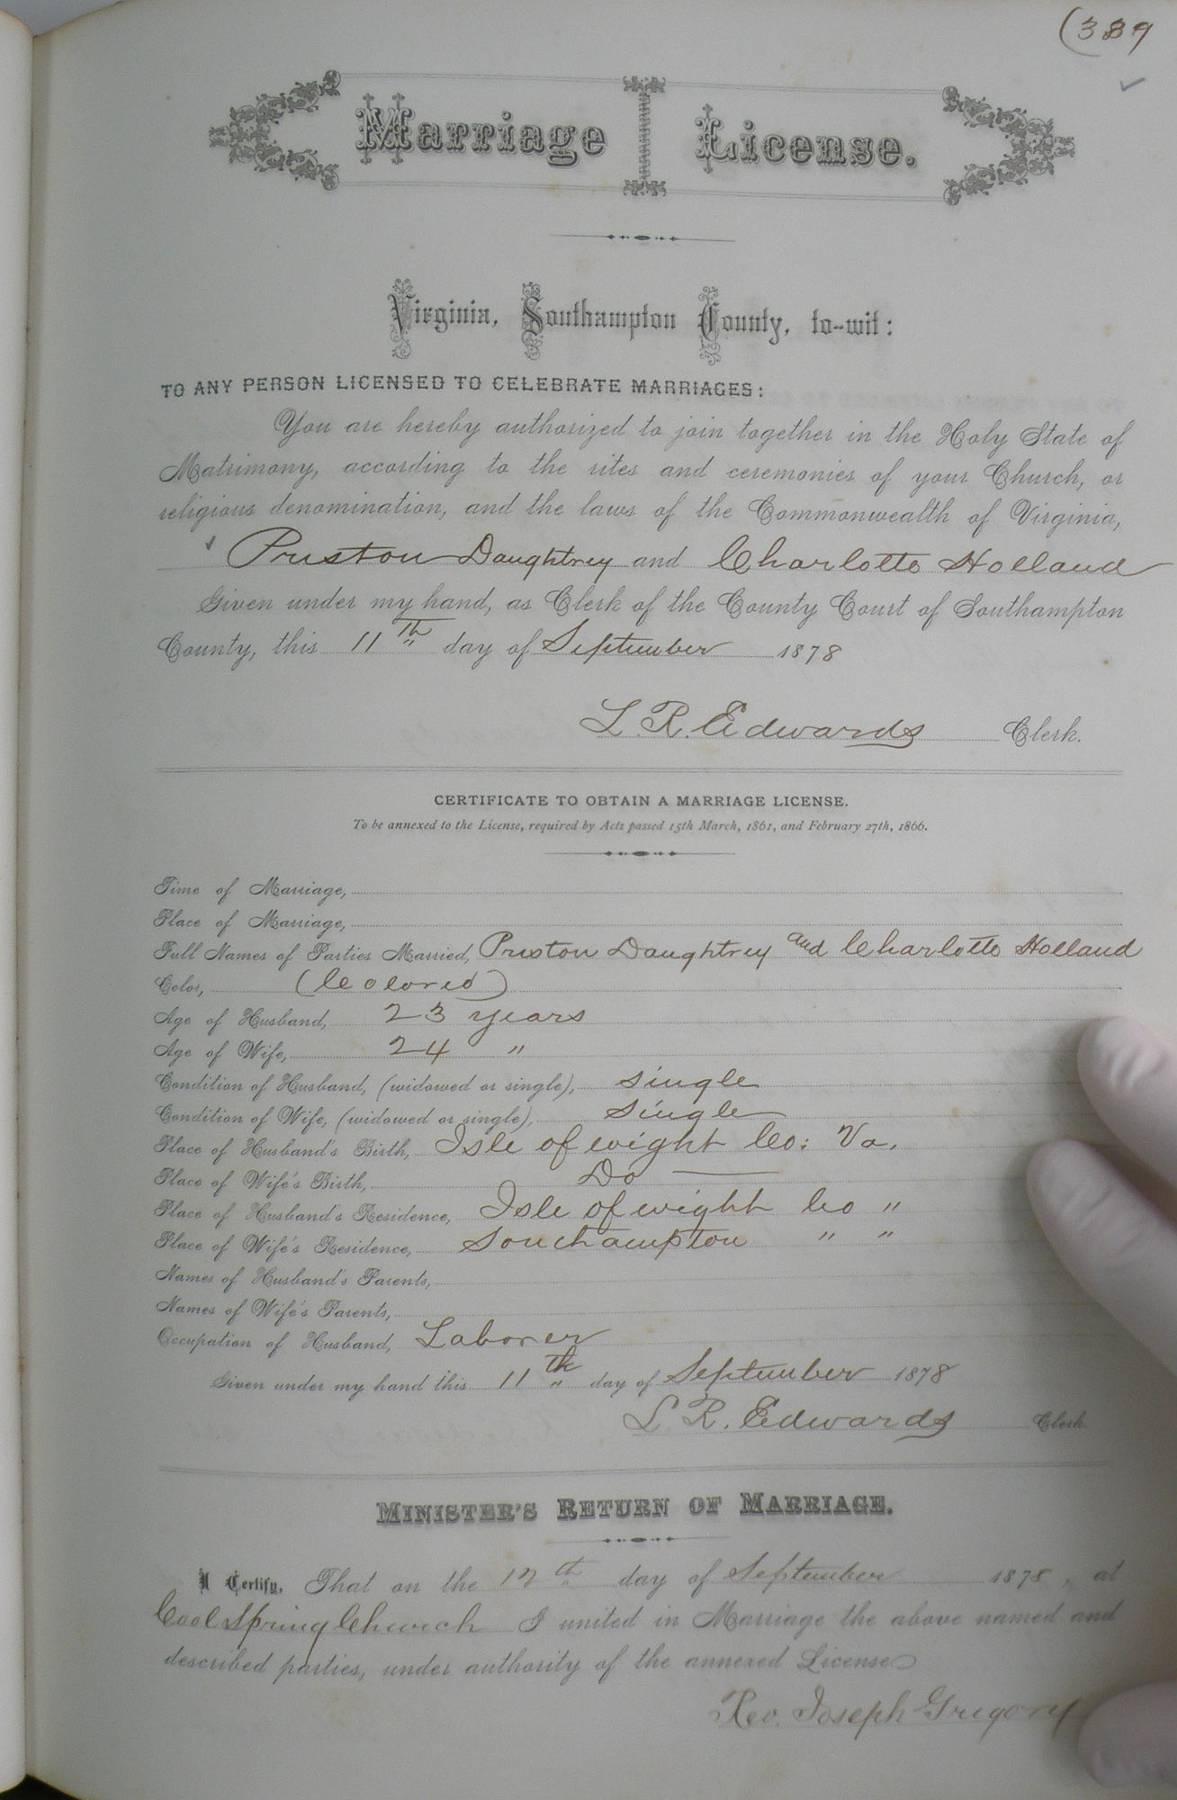 (389
Marriage License.
Virginia, Southampton County, to-wit:
TO ANY PERSON LICENSED TO CELEBRATE MARRIAGES:
You are hereby authorized to join together in the Holy State of
Matrimony, according to the rites and ceremonies of your Church, or
religious denomination, and the laws of the Commonwealth of Virginia,
Preston Daughtrey and Charlotte Holland
Given under my hand, as Clerk of the County Court of Southampton
County, this 11th day of September 1878
L. R. Edwards Clerk.
CERTIFICATE TO OBTAIN A MARRIAGE LICENSE.
To be annexed to the License, required by Acts passed 15th March, 1861, and February 27th, 1866.
Time of Marriage,
Place of Marriage,
Full Names of Parties Married, Preston Daughtrey and Charlotte Holland
Color, (Colored)
Age of Husband, 23 years
Age of Wife, 24 "
Condition of Husband, (widowed or single), single
Condition of Wife, (widowed or single), single
Place of Husband's Birth, Isle of wight Co: Va.
Place of Wife's Birth, Do
Place of Husband's Residence, Isle of wight Co "
Place of Wife's Residence, Southampton " "
Names of Husband's Parents,
Names of Wife's Parents,
Occupation of Husband, Laborer
Given under my hand this 11th day of September 1878
L. R. Edwards Clerk
MINISTER'S RETURN OF MARRIAGE.
I Certify, That on the th day of September 1878, at
Cool Spring Church I united in Marriage the above named and
described parties, under authority of the annexed License
Rev. Joseph Gregory